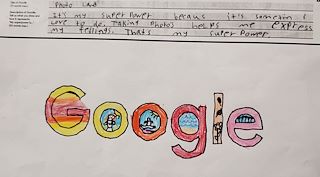 Photo Lab
It's my super Power becaus it's somethin I
love to do. Taking photos helps me express
my fellings. That's my super Power.
Google